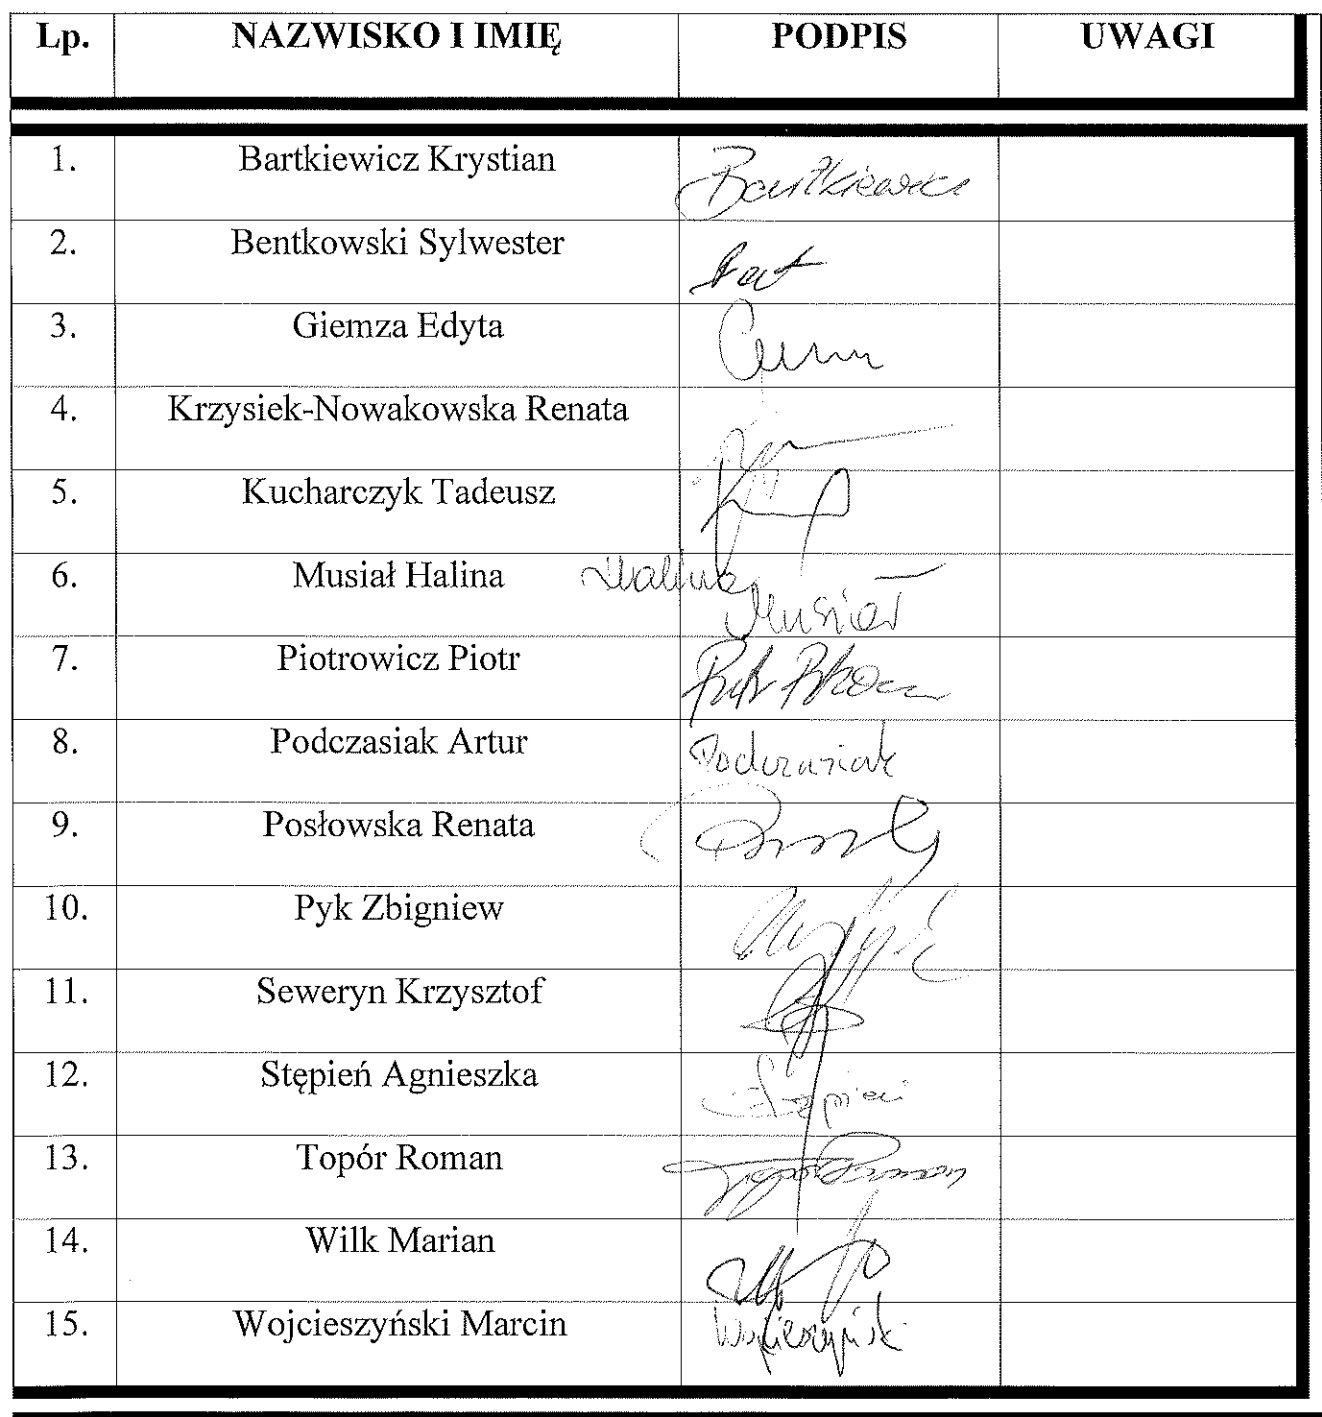 Lp. NAZWISKO I IMIĘ PODPIS UWAGI
1. Bartkiewicz Krystian Bartkiewicz
2. Bentkowski Sylwester
3. Giemza Edyta
4. Krzysiek-Nowakowska Renata
5. Kucharczyk Tadeusz
6. Musiał Halina Halina Musiał
7. Piotrowicz Piotr
8. Podczasiak Artur Podczasiak
9. Posłowska Renata
10. Pyk Zbigniew
11. Seweryn Krzysztof
12. Stępień Agnieszka Stępień
13. Topór Roman
14. Wilk Marian
15. Wojcieszyński Marcin Wojcieszyński